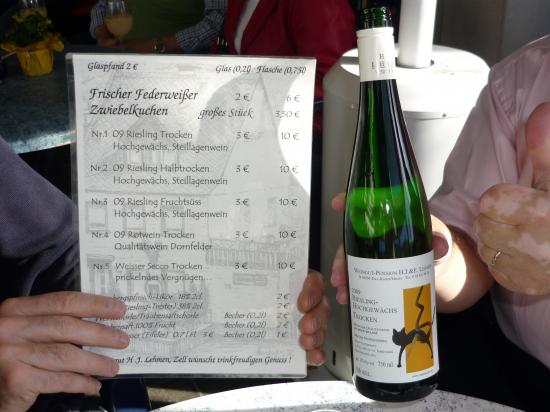 Glaspfand 2 € Glas (0,2l) Flasche (0,75l)
Frischer Federweißer 2 € 6 €
Zwiebelkuchen großes Stück 3,50 €
Nr.1 09 Riesling Trocken 3 € 10 €
Hochgewächs, Steillagenwein
Nr.2 09 Riesling Halbtrocken 3 € 10 €
Hochgewächs, Steillagenwein
Nr.3 09 Riesling Fruchtsüss 3 € 10 €
Hochgewächs, Steillagenwein
Nr.4 09 Rotwein Trocken 3 € 10 €
Qualitätswein Dornfelder
Nr.5 Weisser Secco Trocken 3 € 10 €
prickelndes Vergnügen...
18% 2cl. 2 €
38% 2cl. 2 €
Becher (0,2l) 2 €
100% Frucht Becher (0,2l)
0,7l Fl. 3 € Becher (0,2l)
H. J. Lehmen, Zell wünscht trinkfreudigen Genuss !
Weingut-Pension H.J.&E. Lehmen
2009
Riesling-
Hochgewächs
Trocken
750 ml